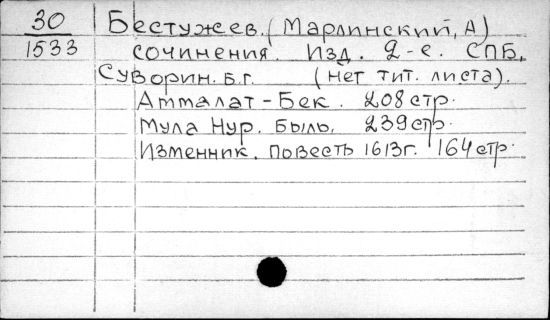 30 Бестужев. (Марлинский, А)
1533 сочинения. Изд. 2-е. СПБ,
Суворин. б.г. (нет тит. листа).
Аммалат-Бек. 208 стр.
Мула Нур. Быль. 239 стр.
Изменник. Повесть 1613г. 164 стр.